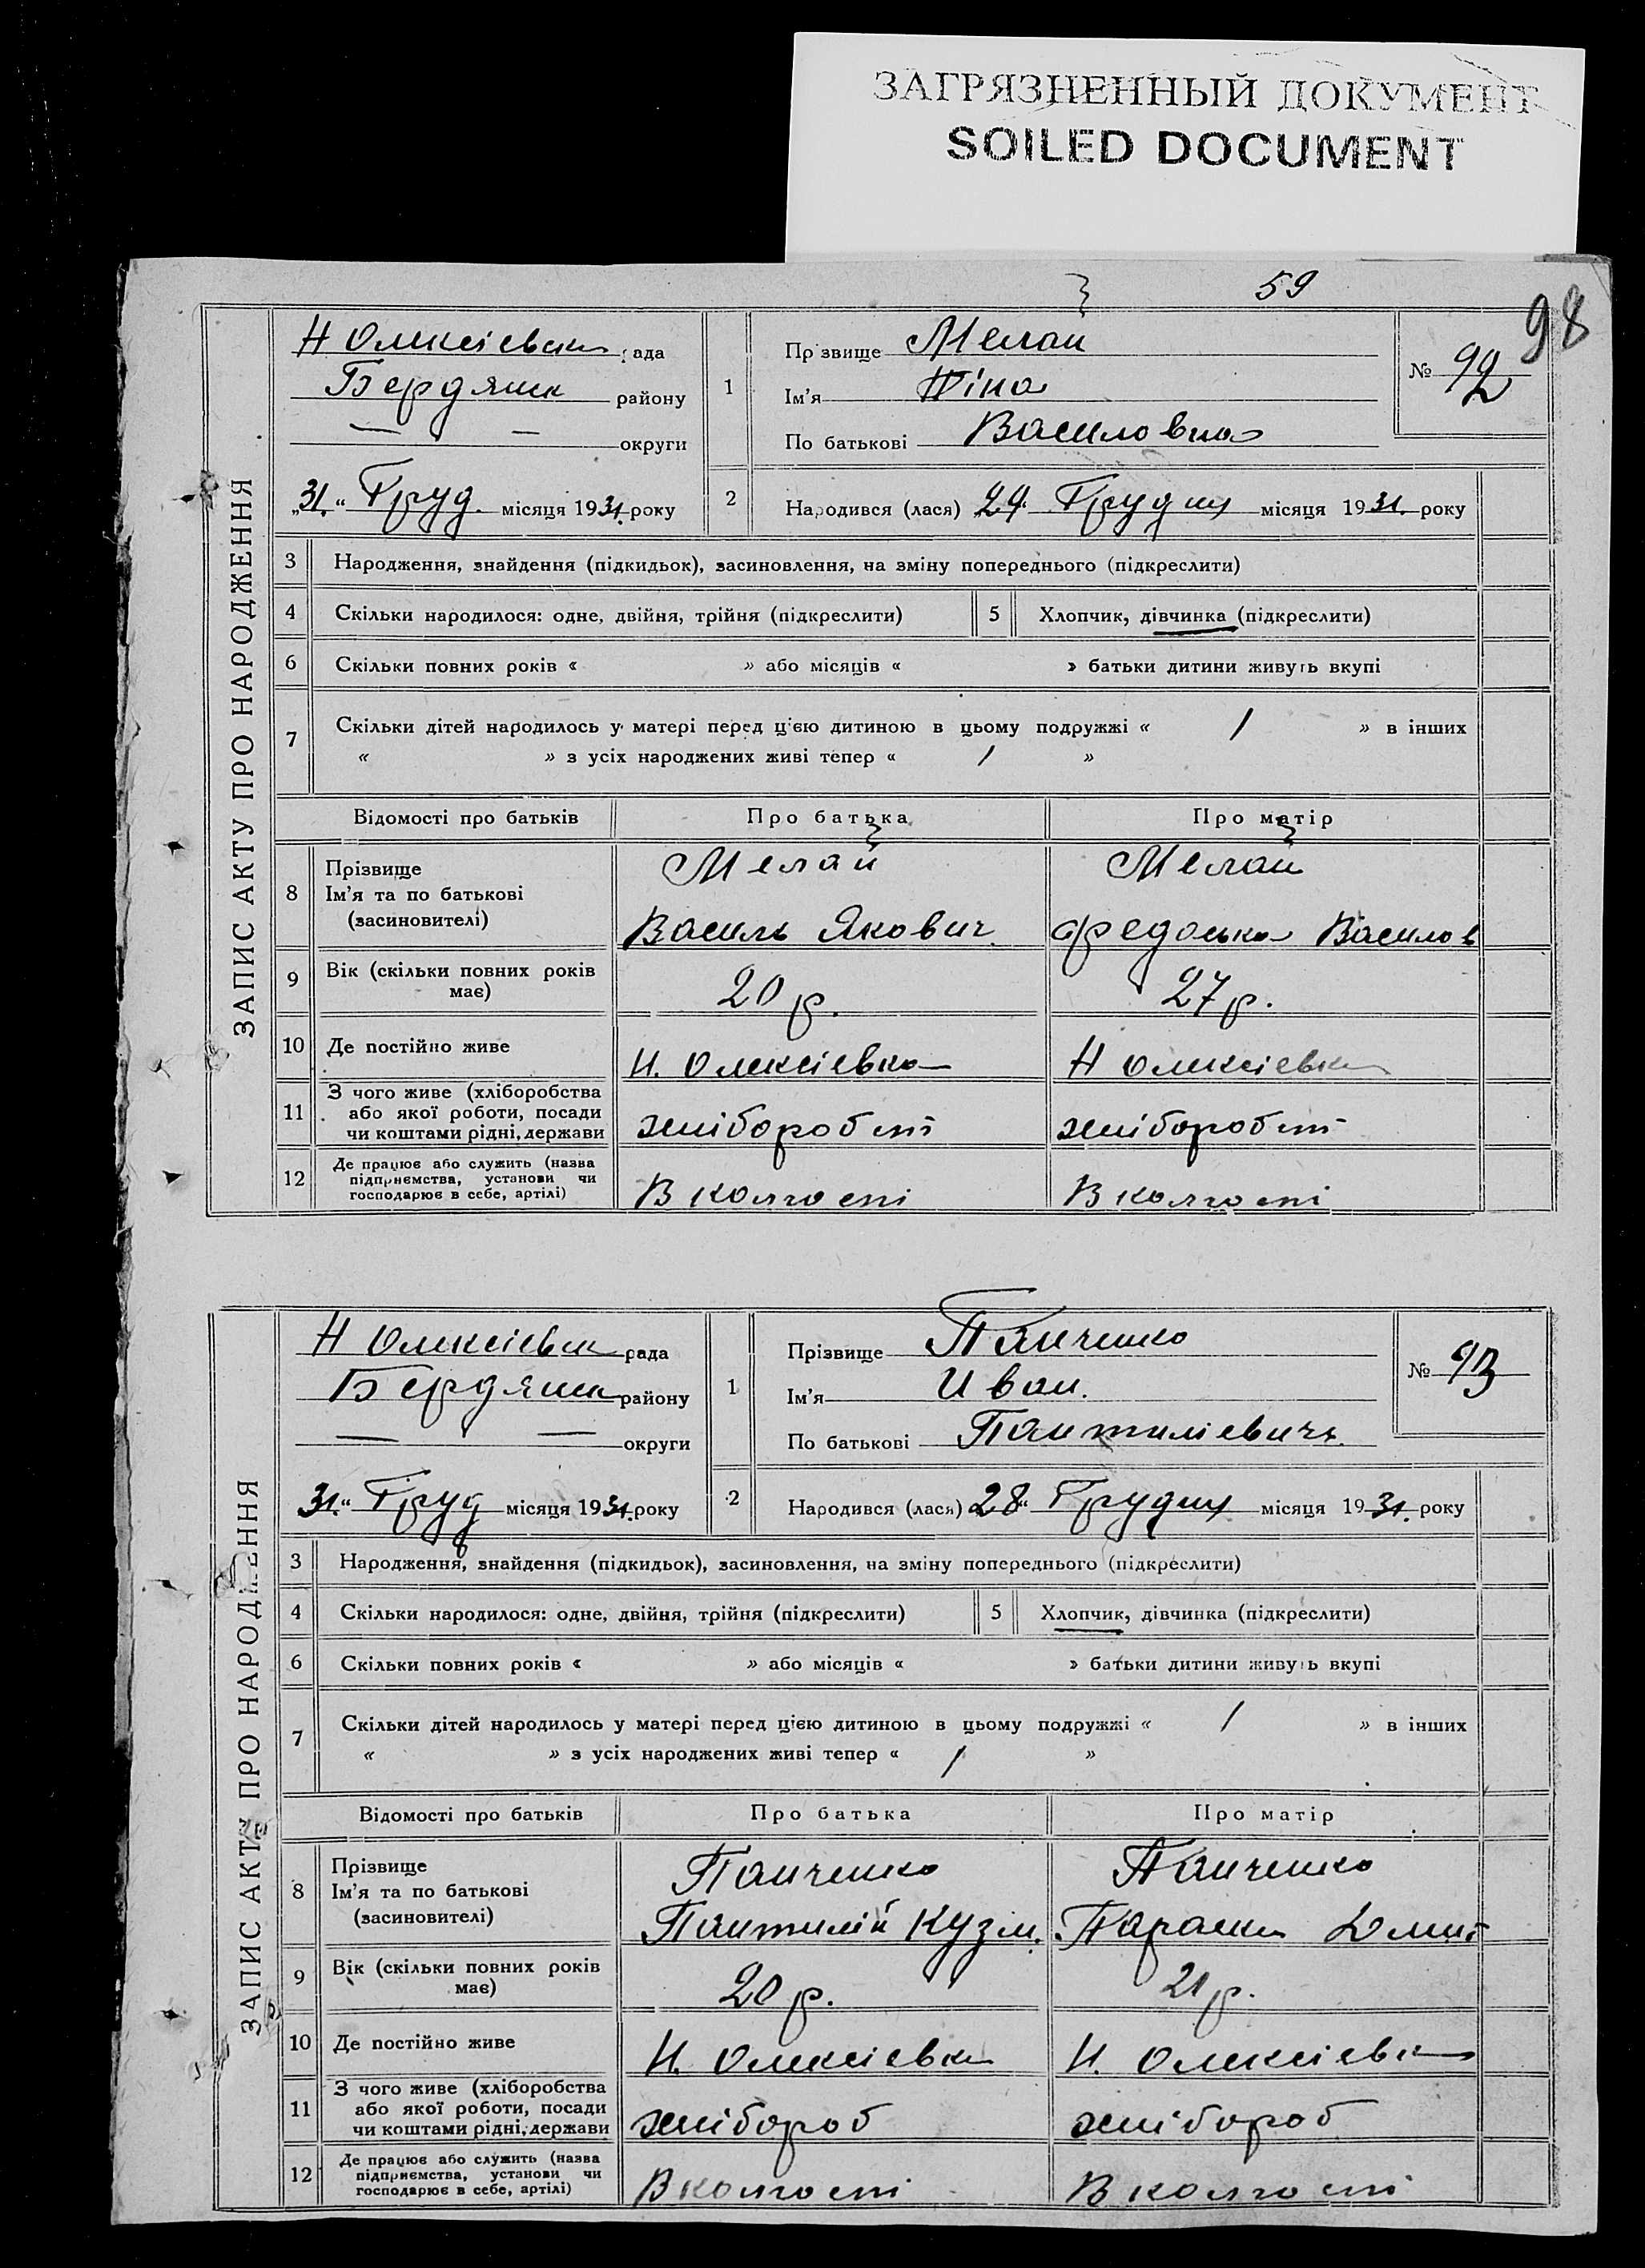 ЗАГРЯЗНЕННЫЙ ДОКУМЕНТ
SOILED DOCUMENT
59
98
ЗАПИС АКТУ ПРО НАРОДЖЕННЯ
Н Олексіевка рада
Бердянск району
— — округи
„31“ Груд. місяця 1931. року
1
Прізвище Мелай
Ім'я Ніна
По батькові Василовна
№ 92
2
Народився (лася) 24 Грудня місяця 1931. року
3 Народження, знайдення (підкидьок), засиновлення, на зміну попереднього (підкреслити)
4 Скільки народилося: одне, двійня, трійня (підкреслити) 5 Хлопчик, дівчинка (підкреслити)
6 Скільки повних років « » або місяців « » батьки дитини живуть вкупі
7 Скільки дітей народилось у матері перед цією дитиною в цьому подружжі « 1 » в інших
« » з усіх народжених живі тепер « 1 »
Відомості про батьків Про батька Про матір
8 Прізвище
Ім'я та по батькові
(засиновителі)
Мелай Мелай
Василь Якович Федоська Василов
9 Вік (скільки повних років
має)
20 р. 27 р.
10 Де постійно живе Н. Олексіевка Н Олексіевка
11 З чого живе (хліборобства
або якої роботи, посади
чи коштами рідні, держави
хліборобст хліборобст
12 Де працює або служить (назва
підприємства, установи чи
господарює в себе, артілі)
В колгоспі В колгоспі
ЗАПИС АКТУ ПРО НАРОДЖЕННЯ
Н Олексіевка рада
Бердянск району
— — округи
31“ Груд місяця 1931. року
1
Прізвище Панченко
Ім'я Иван.
По батькові Пантиліевичь
№ 93
2
Народився (лася) 28“ Грудня місяця 1931. року
3 Народження, знайдення (підкидьок), засиновлення, на зміну попереднього (підкреслити)
4 Скільки народилося: одне, двійня, трійня (підкреслити) 5 Хлопчик, дівчинка (підкреслити)
6 Скільки повних років « » або місяців « » батьки дитини живуть вкупі
7 Скільки дітей народилось у матері перед цією дитиною в цьому подружжі « 1 » в інших
« » з усіх народжених живі тепер « 1 »
Відомості про батьків Про батька Про матір
8 Прізвище
Ім'я та по батькові
(засиновителі)
Панченко Панченко
Пантилій Кузм. Параска Дмит
9 Вік (скільки повних років
має)
20 р. 21 р.
10 Де постійно живе Н. Олексіевка Н. Олексіевка
11 З чого живе (хліборобства
або якої роботи, посади
чи коштами рідні, держави
хлібороб хлібороб
12 Де працює або служить (назва
підприємства, установи чи
господарює в себе, артілі)
В колгоспі В колгоспі